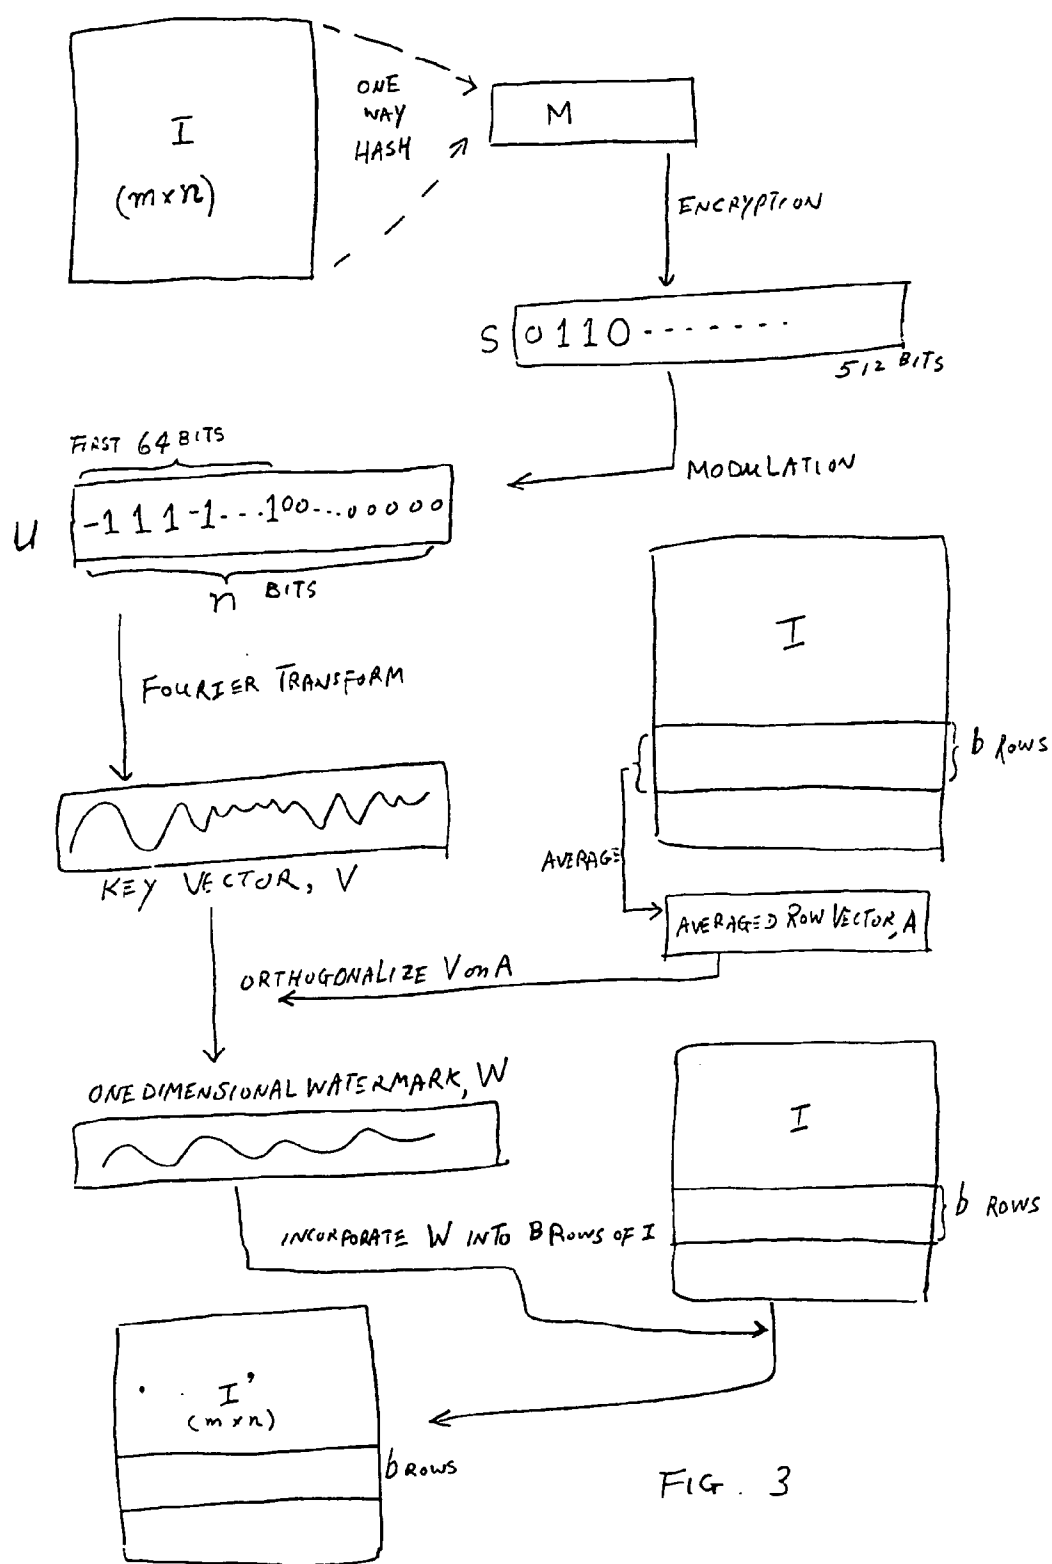 I
(m×n)
ONE
WAY
HASH
M
ENCRYPTION
S 0110-------
512 BITS
MODULATION
FIRST 64 BITS
U -1 1 1 -1---100---00000
n BITS
FOURIER TRANSFORM
I
b ROWS
KEY VECTOR, V
AVERAGE
AVERAGED ROW VECTOR, A
ORTHOGONALIZE V on A
ONE DIMENSIONAL WATERMARK, W
I
b ROWS
INCORPORATE W INTO B ROWS OF I
I'
(m×n)
b ROWS
FIG. 3